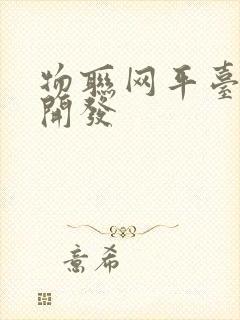 物聯网平臺
開發
意希